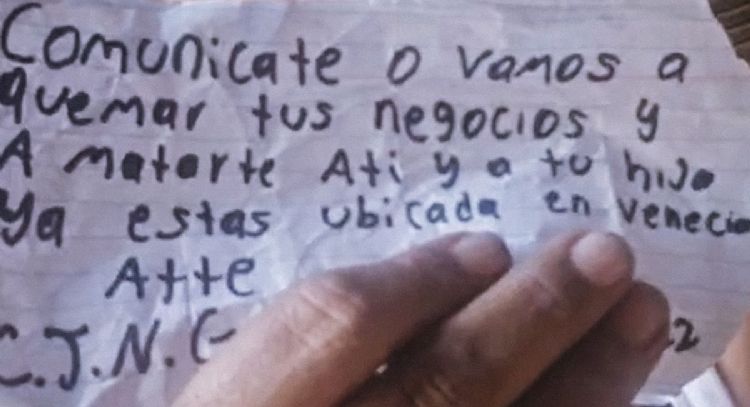 Comunicate o vamos a
quemar tus negocios y
A matarte Ati y a tu hijo
ya estas ubicada en Venecia
Atte
C.J.N.G
2